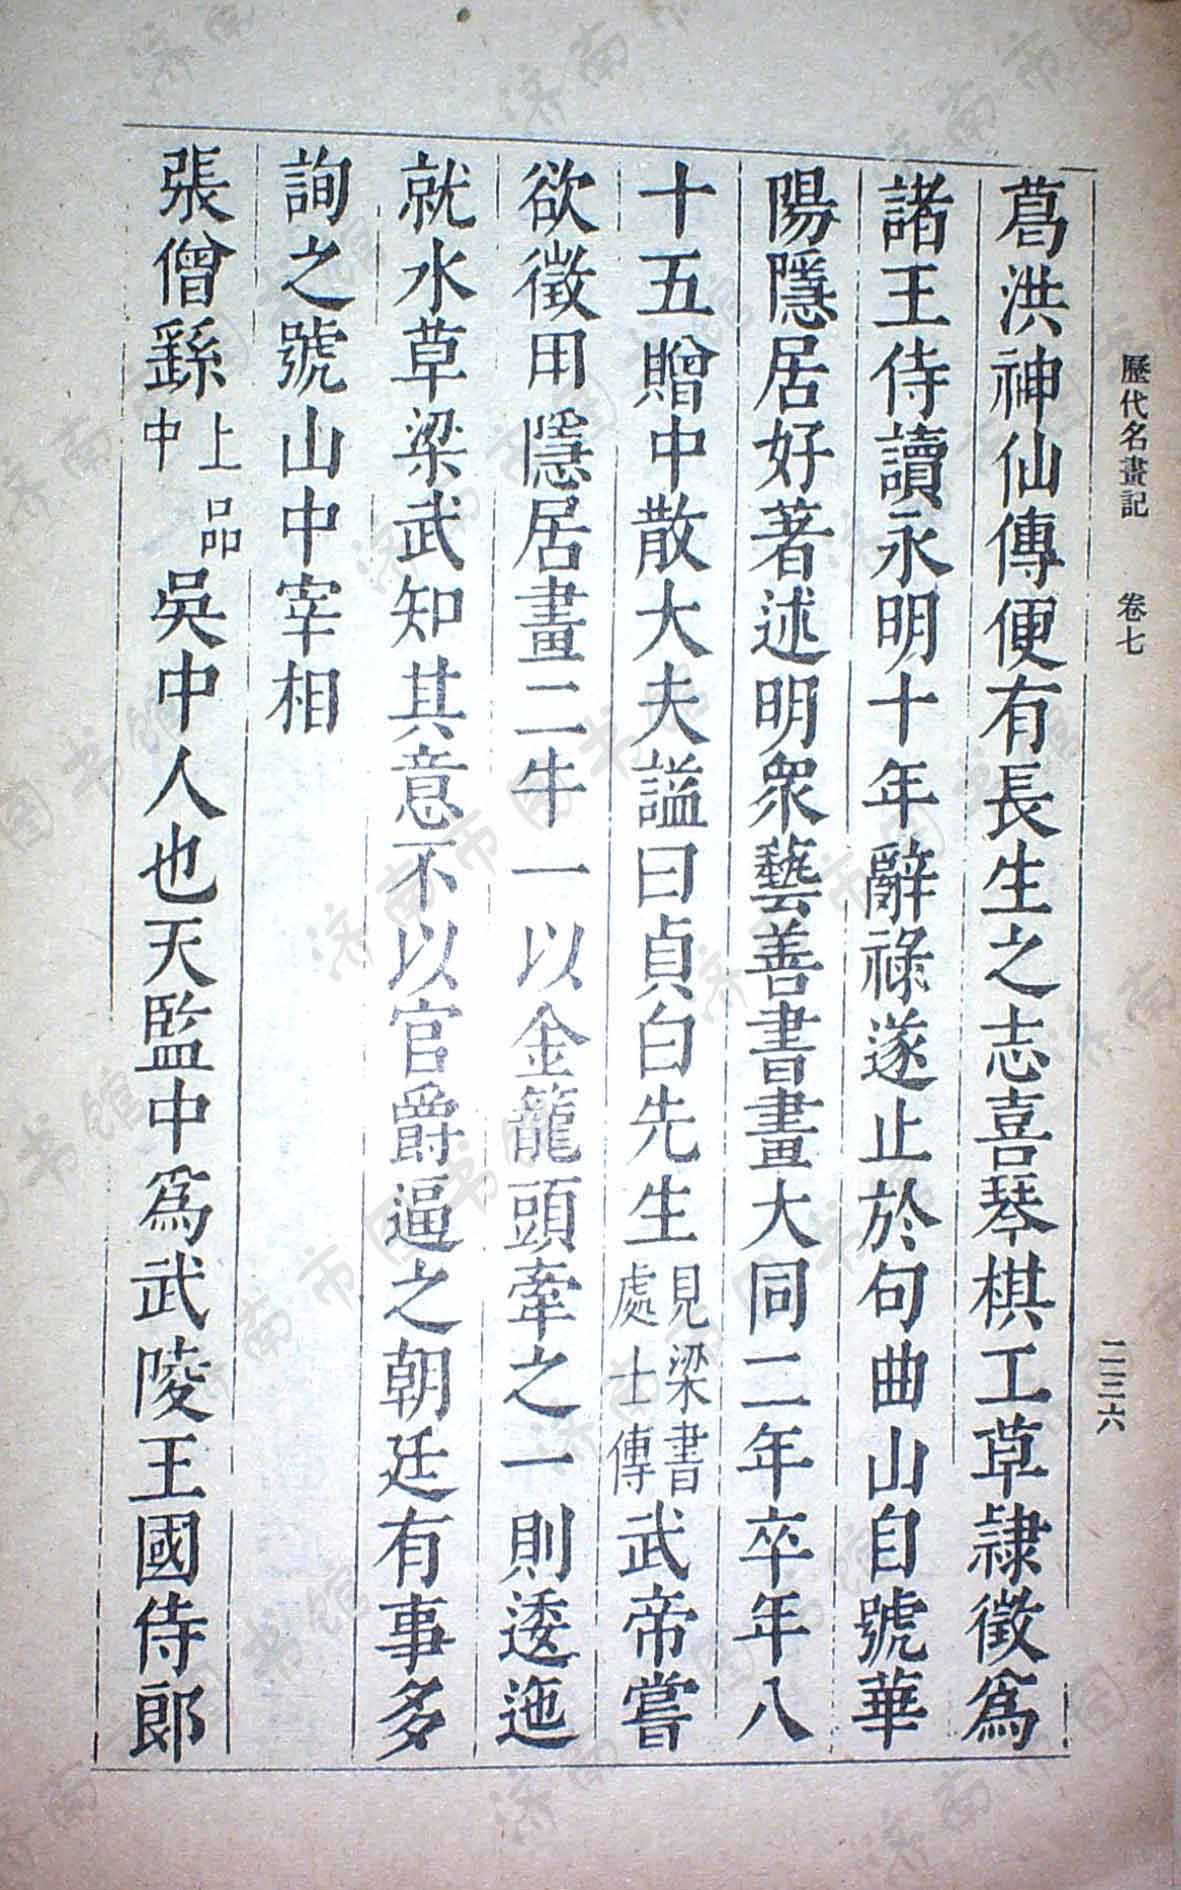 歷代名畫記 卷七 二三六
葛洪神仙傳便有長生之志喜琴棋工草隷徵爲
諸王侍讀永明十年辭祿遂止於句曲山自號華
陽隱居好著述明衆藝善書畫大同二年卒年八
十五贈中散大夫謚曰貞白先生見梁書處士傳武帝嘗
欲徵用隱居畫二牛一以金籠頭牽之一則逶迤
就水草梁武知其意不以官爵逼之朝廷有事多
詢之號山中宰相
張僧繇上品中吳中人也天監中爲武陵王國侍郎
济南市图书馆